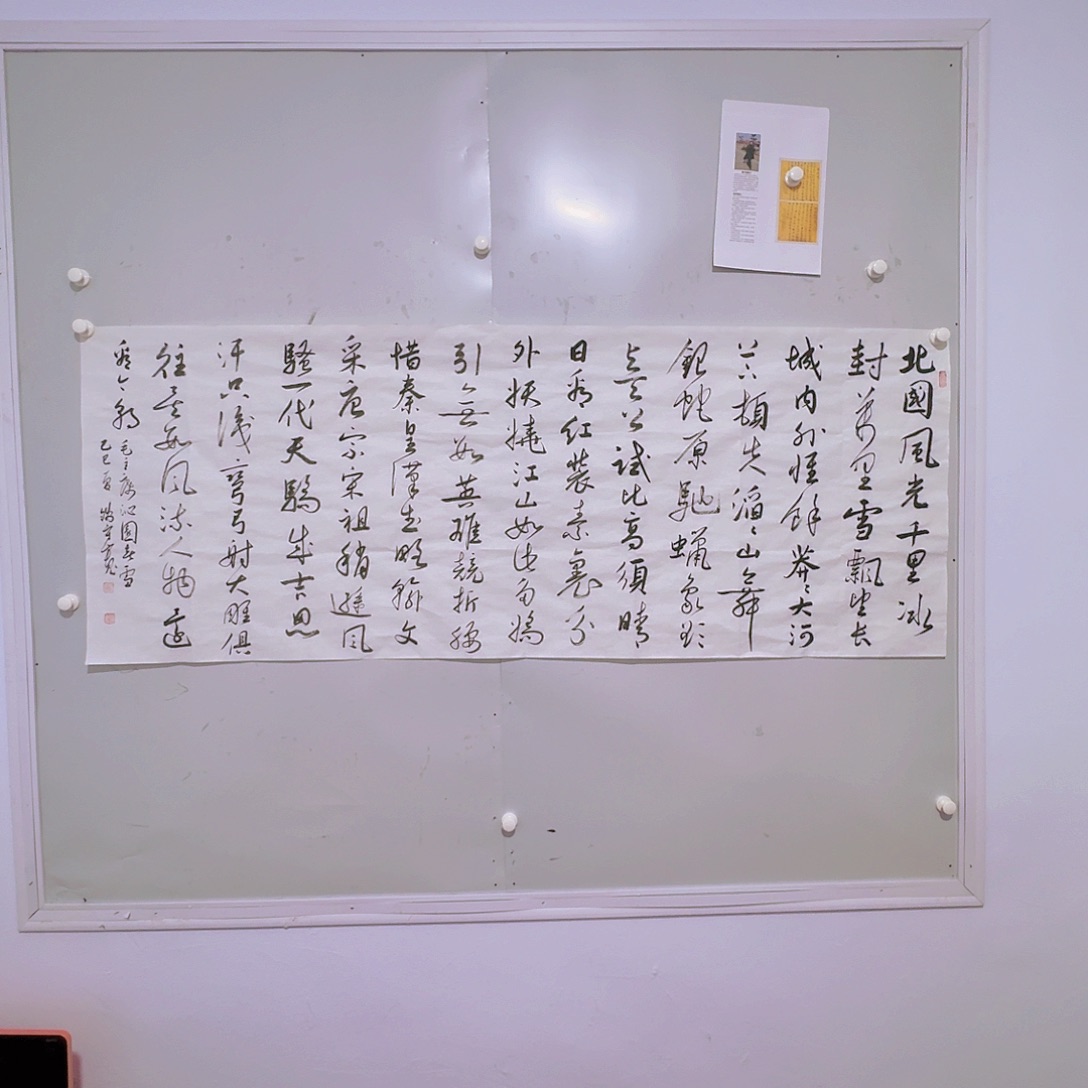 北國風光千里冰
封萬里雪飄望长
城内外惟餘莽〻大河
上下頓失滔〻山舞
銀蛇原馳蠟象欲
与天公試比高須晴
日看红裝素裹分
外妖娆江山如此多嬌
引無數英雄競折腰
惜秦皇漢武略輸文
采唐宗宋祖稍遜風
騷一代天驕成吉思
汗只識彎弓射大雕俱
往矣數風流人物還
看今朝
毛主席沁園春雪